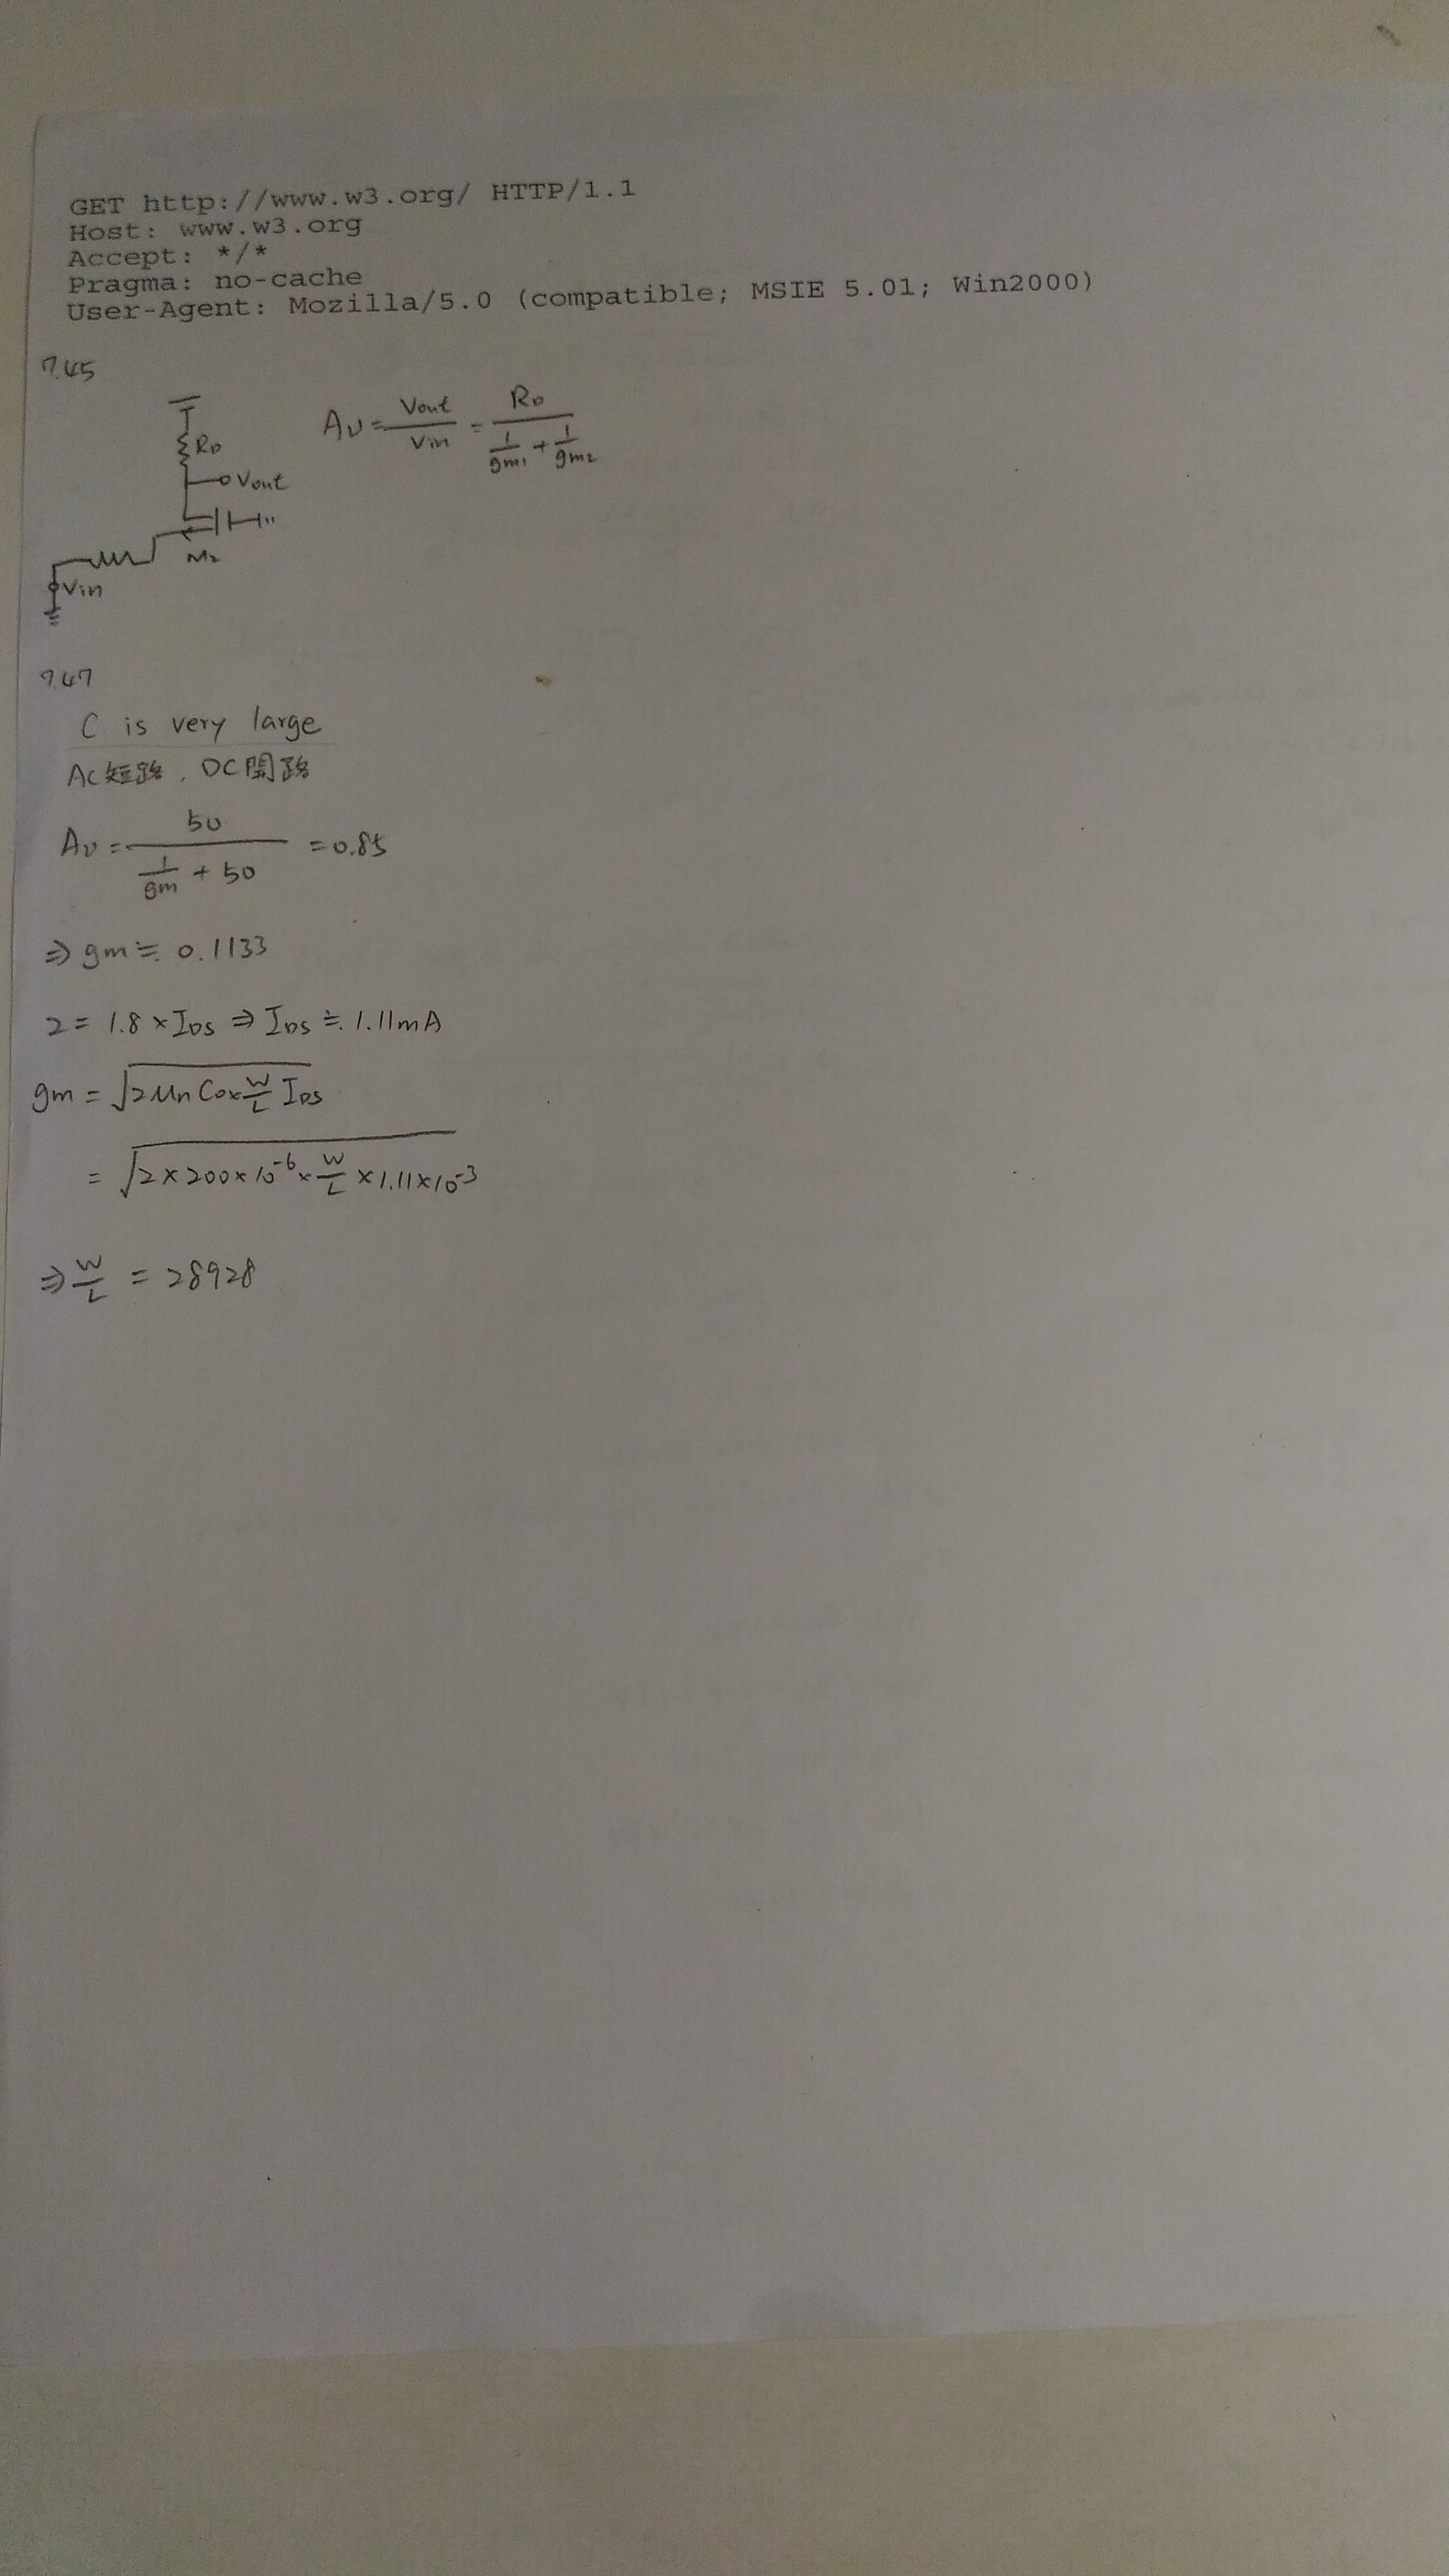 GET http://www.w3.org/ HTTP/1.1
Host: www.w3.org
Accept: */*
Pragma: no-cache
User-Agent: Mozilla/5.0 (compatible; MSIE 5.01; Win2000)
7.45
RD
Vout
M2
Vin
Av = Vout / Vin = RD / (1/gm1 + 1/gm2)
7.47
C is very large
AC短路, DC開路
Av = 50 / (1/gm + 50) = 0.85
⇒ gm ≒ 0.1133
2 = 1.8 × IDS ⇒ IDS ≒ 1.11mA
gm = √(2 Un Cox W/L IDS)
= √(2×200×10^-6 × W/L × 1.11×10^-3)
⇒ W/L = 28928